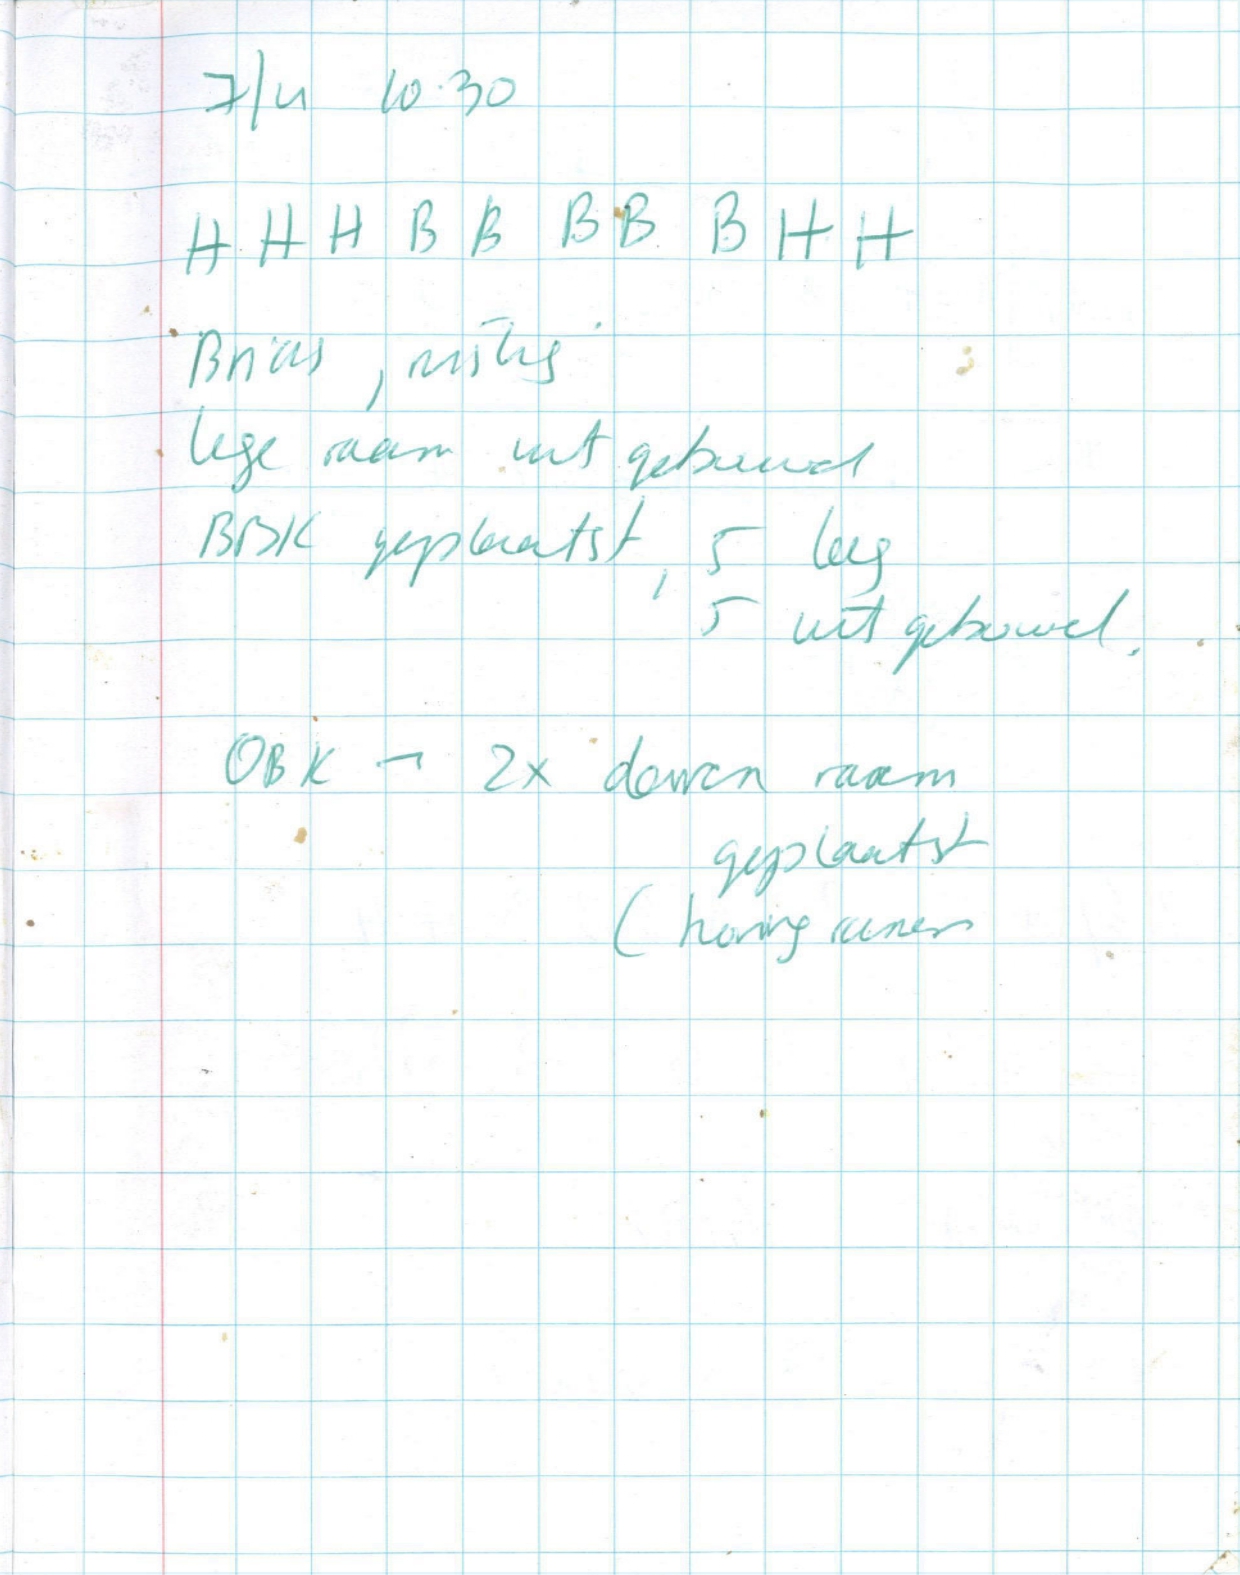 7/4 10.30
H H H B B B B B H H
Bn'as, rustig
lege raam uitgebouwd
BBK geplaatst, 5 leeg
5 uitgebouwd.
OBK → 2x darren raam
geplaatst
( honing ramen